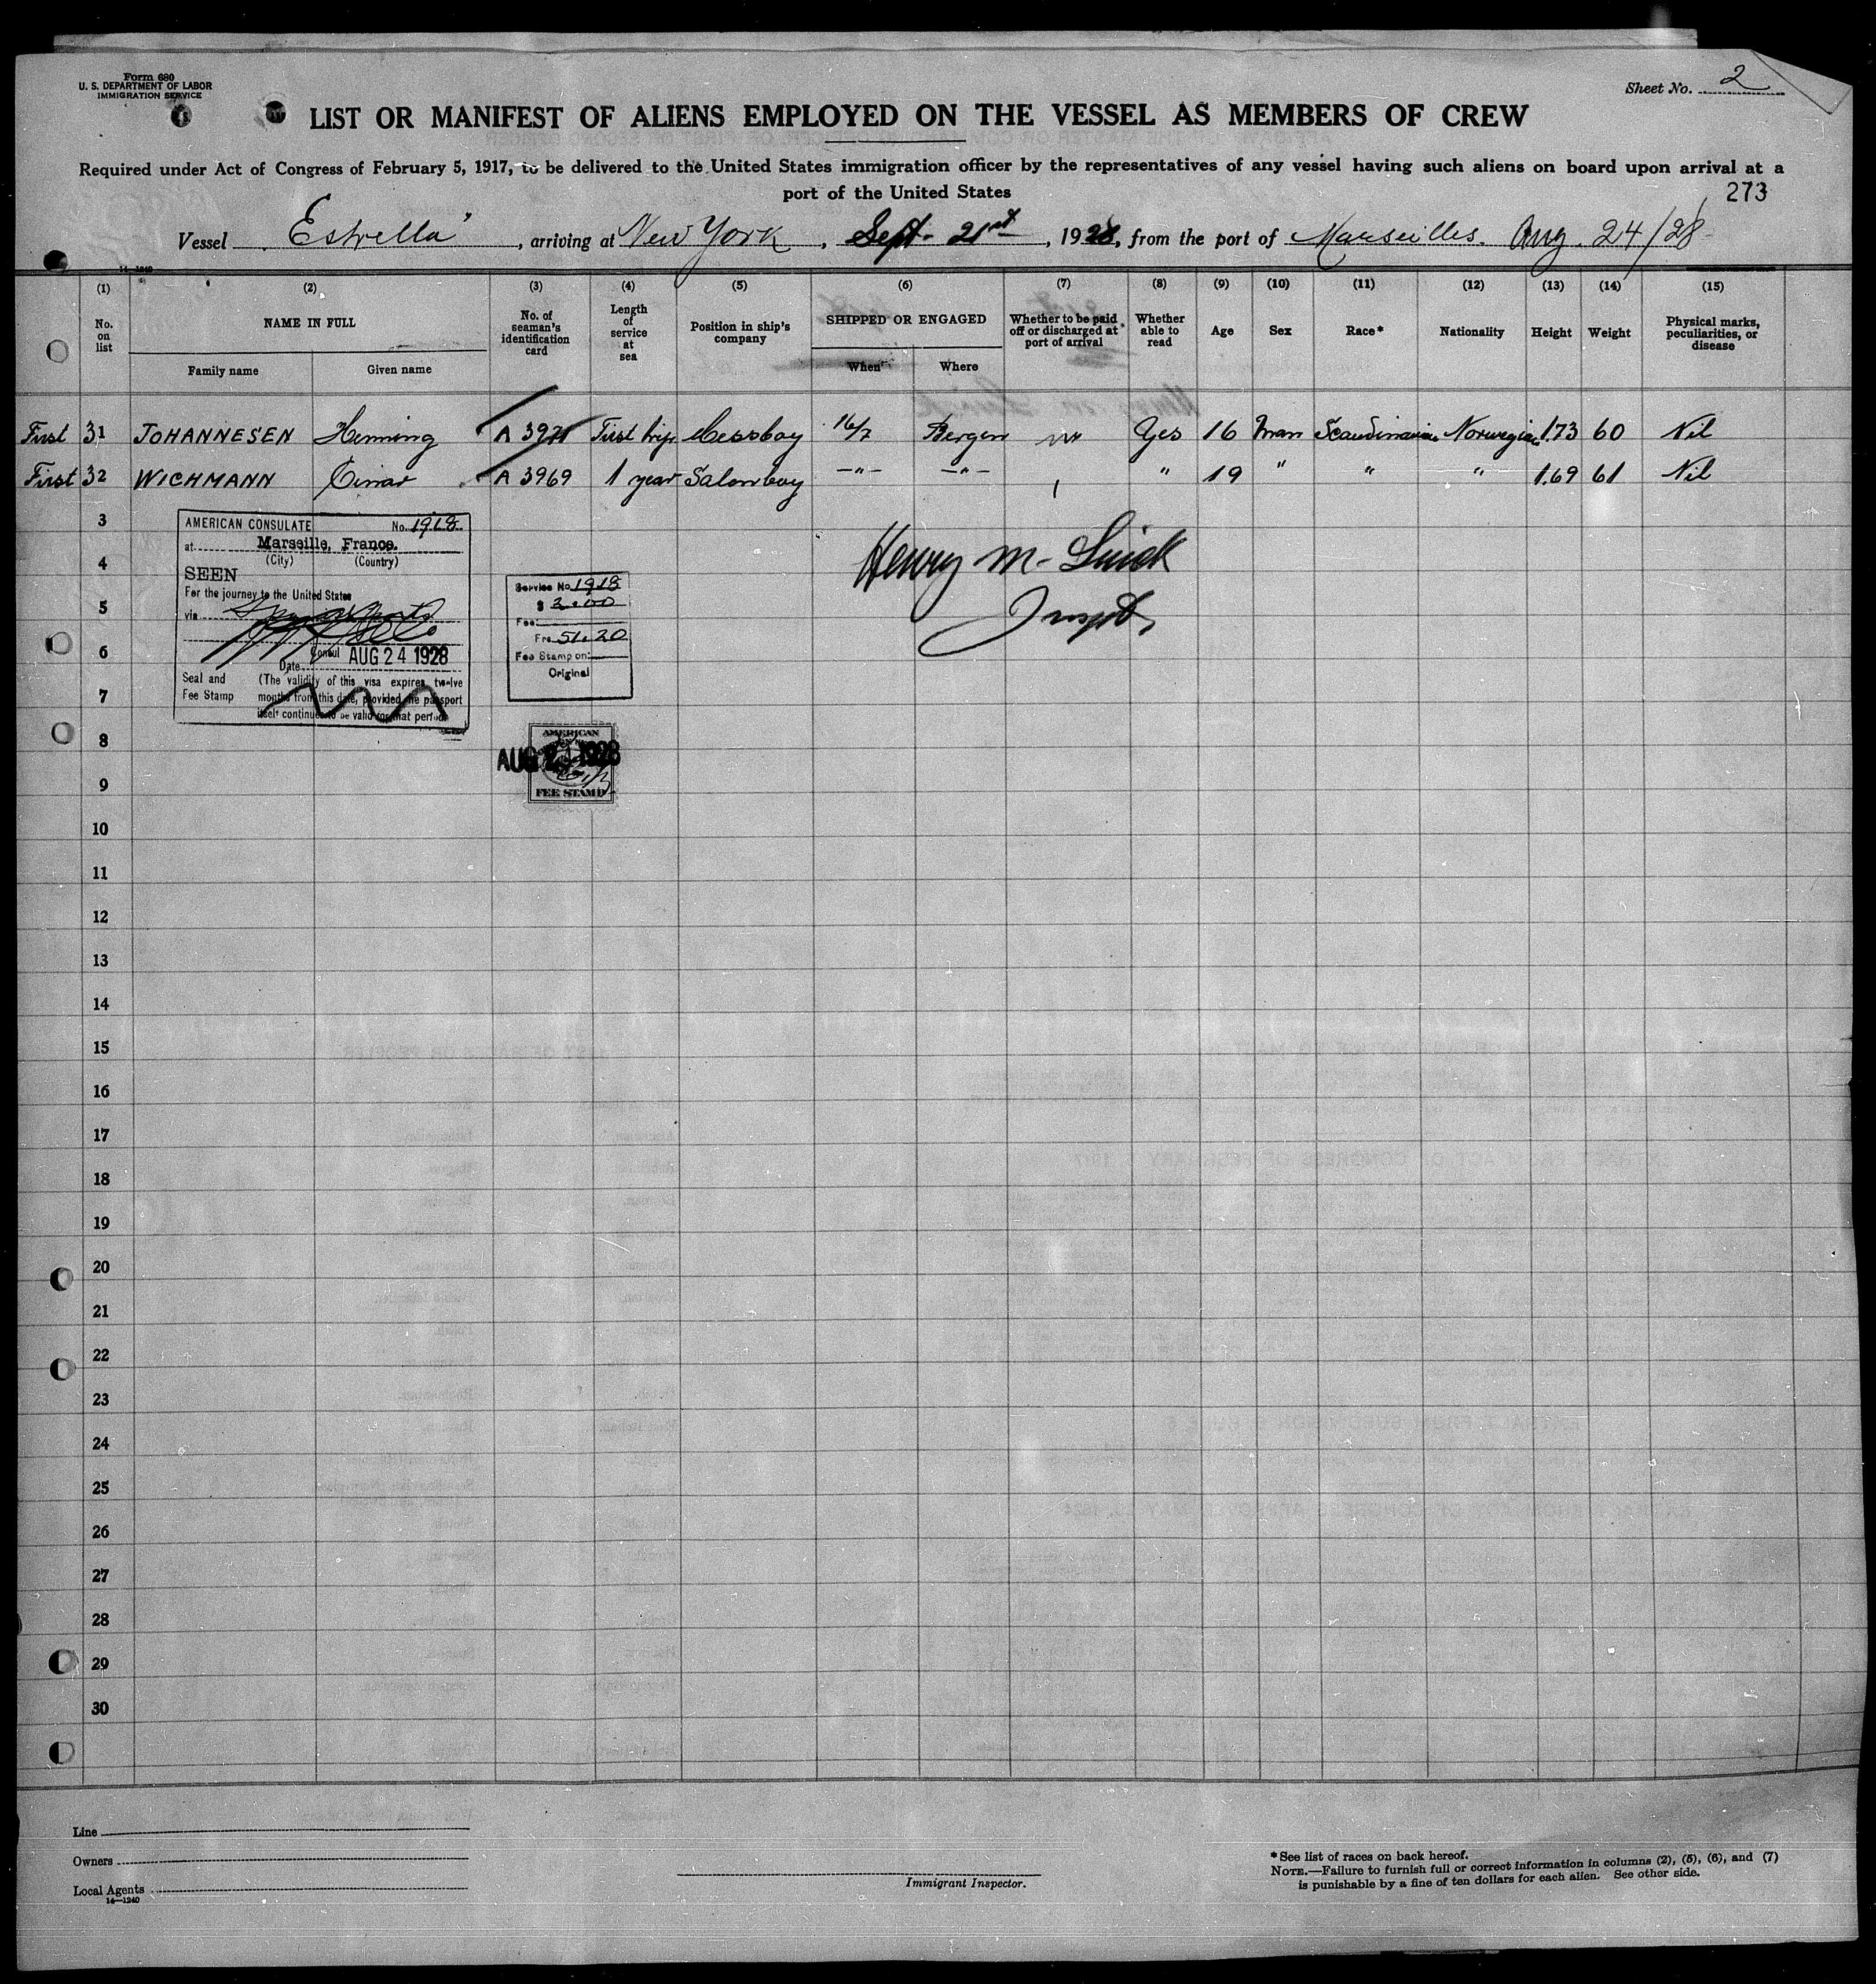 Form 680
U. S. DEPARTMENT OF LABOR
IMMIGRATION SERVICE
Sheet No. 2
LIST OR MANIFEST OF ALIENS EMPLOYED ON THE VESSEL AS MEMBERS OF CREW
Required under Act of Congress of February 5, 1917, to be delivered to the United States immigration officer by the representatives of any vessel having such aliens on board upon arrival at a
port of the United States
273
Vessel "Estrella", arriving at New York, Sept. 21st, 1928, from the port of Marseilles. Aug. 24/28
14-1240
(1) (2) (3) (4) (5) (6) (7) (8) (9) (10) (11) (12) (13) (14) (15)
No. on list NAME IN FULL No. of seaman's identification card Length of service at sea Position in ship's company SHIPPED OR ENGAGED Whether to be paid off or discharged at port of arrival Whether able to read Age Sex Race* Nationality Height Weight Physical marks, peculiarities, or disease
Family name Given name When Where
First 31 JOHANNESEN Henning A 3971 First trip Messboy 16/7 Bergen no Yes 16 Man Scandinavian Norwegian 1.73 60 Nil
First 32 WICHMANN Einar A 3969 1 year Salonboy -"- -"- " 19 " " " 1.69 61 Nil
3
4
5
6
7
8
9
10
11
12
13
14
15
16
17
18
19
20
21
22
23
24
25
26
27
28
29
30
AMERICAN CONSULATE No. 1918
at Marseille, France.
(City) (Country)
SEEN
For the journey to the United States
via
Consul
Date AUG 24 1928
Seal and Fee Stamp
(The validity of this visa expires twelve
months from this date, provided the passport
itself continues to be valid for that period)
Service No. 1918
$ 2.00
Fee:
Frs 51.20
Fee Stamp on:
Original
AMERICAN
AUG 24 1928
FEE STAMP
Henry M.
Inspt.
Line
Owners
Local Agents
14-1240
Immigrant Inspector.
*See list of races on back hereof.
NOTE.—Failure to furnish full or correct information in columns (2), (5), (6), and (7)
is punishable by a fine of ten dollars for each alien. See other side.